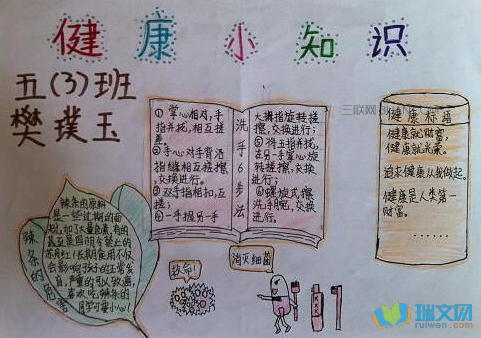 健康小知识
五(3)班
樊璞玉
三联网
洗手6步法
①掌心相对,手
指并拢,相互搓
搓。
②手心对手背沿
指缝相互搓擦,
交换进行。
③双手指相扣,互
搓;
④一手握另一手
大拇指旋转搓
擦,交换进行;
⑤将五指并拢,
在另一手掌心旋
转搓擦,交换
进行;
⑥螺旋式擦
洗手腕,交换
进行。
健康标语
健康就财富,
健康就光荣。
追求健康从我做起。
健康是人类第一
财富。
……
辣条的危害
辣条的原料
是一些过期的面
甚至是国明令禁止的
苏丹红!长期食用不仅
会影响孩子的正常发
育,严重的引以致癌,
喜欢吃辣条的
同学可要小心!
救命!
消灭细菌
瑞文网
ruiwen.com